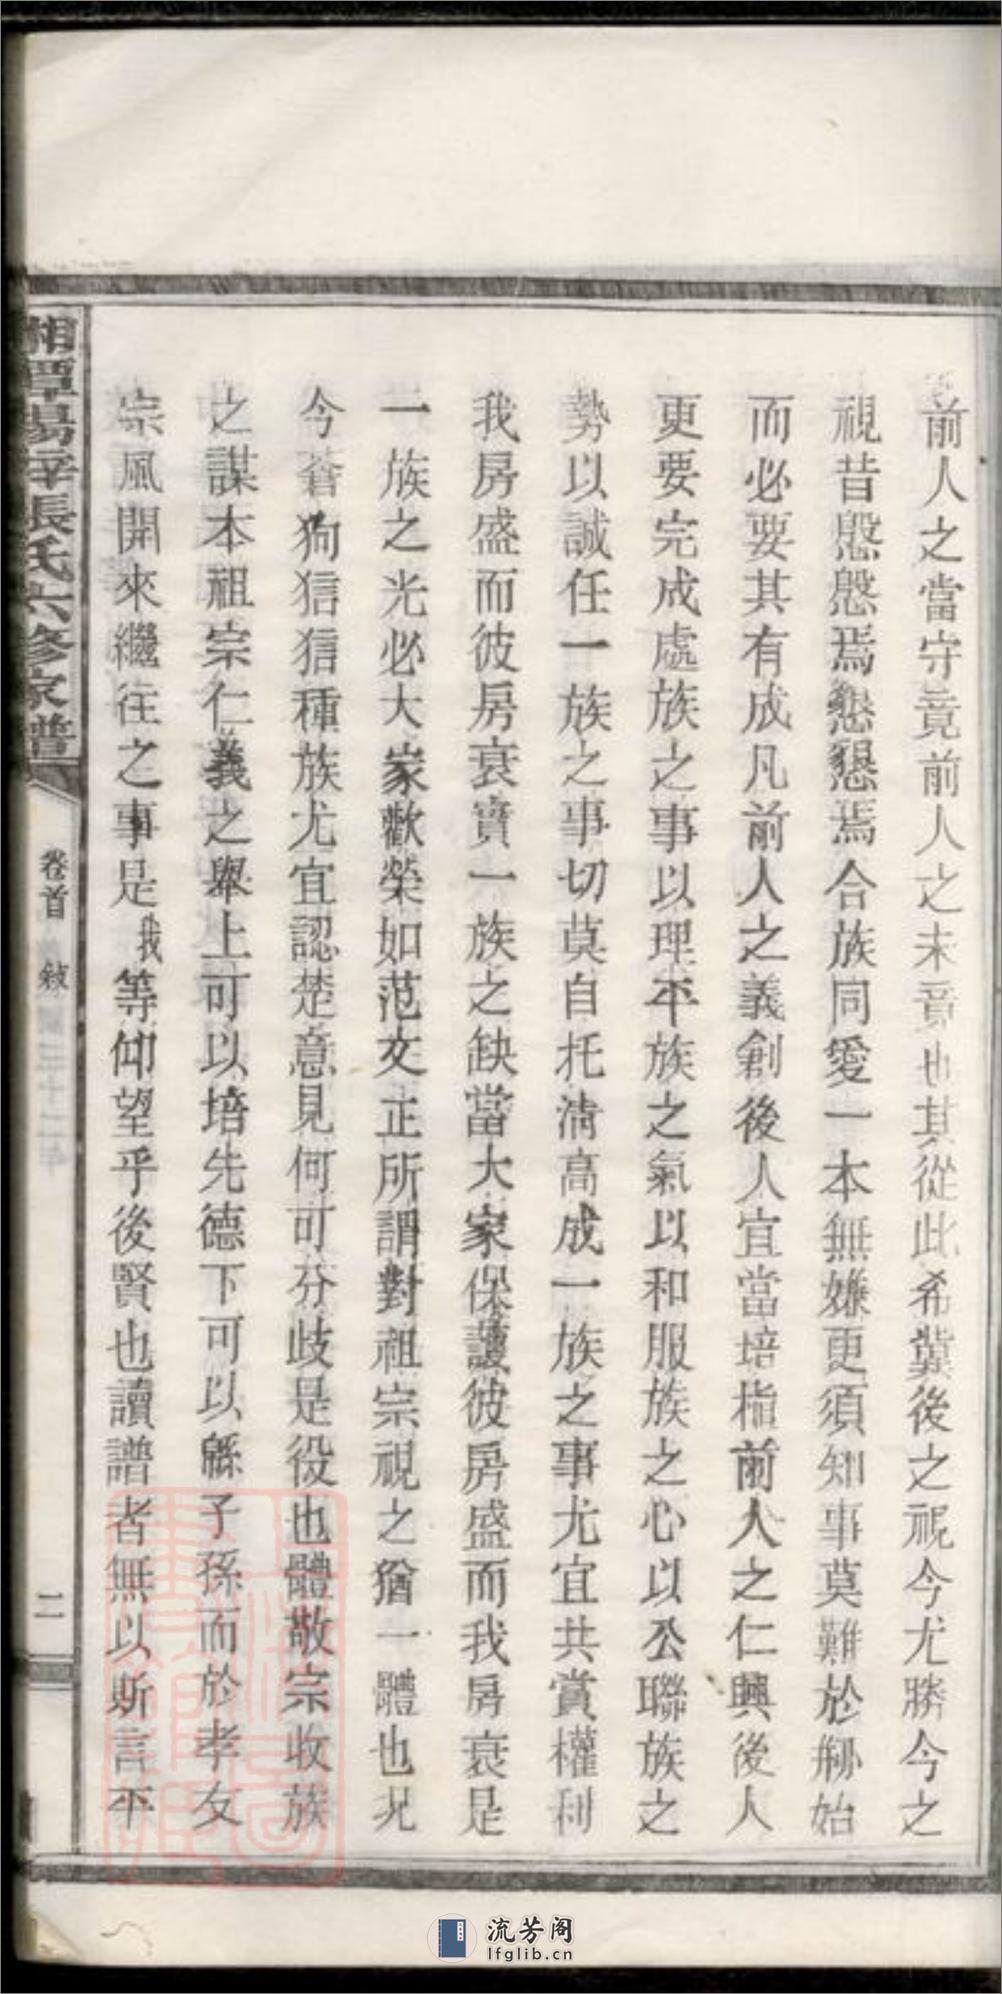 前人之當守竟前人之未竟也其從此希冀後之視今尤勝今之
視昔慇慇焉懇懇焉合族同愛一本無嫌更須知事莫難於剏始
而必要其有成凡前人之義創後人宜當培植前人之仁興後人
更要完成處族之事以理平族之氣以和服族之心以公聯族之
勢以誠任一族之事切莫自托清高成一族之事尤宜共賞權利
我房盛而彼房衰實一族之缺當大家保護彼房盛而我房衰是
一族之光必大家歡榮如范文正所謂對祖宗視之猶一體也况
今蒼狗狺狺種族尤宜認楚意見何可分歧是役也體敬宗收族
之謀本祖宗仁義之舉上可以培先德下可以繇子孫而於孝友
宗風開來繼往之事是我等仰望乎後賢也讀譜者無以斯言平
湘潭易孛張氏六修家譜
卷首
敍
二
流芳阁
lfglib.cn